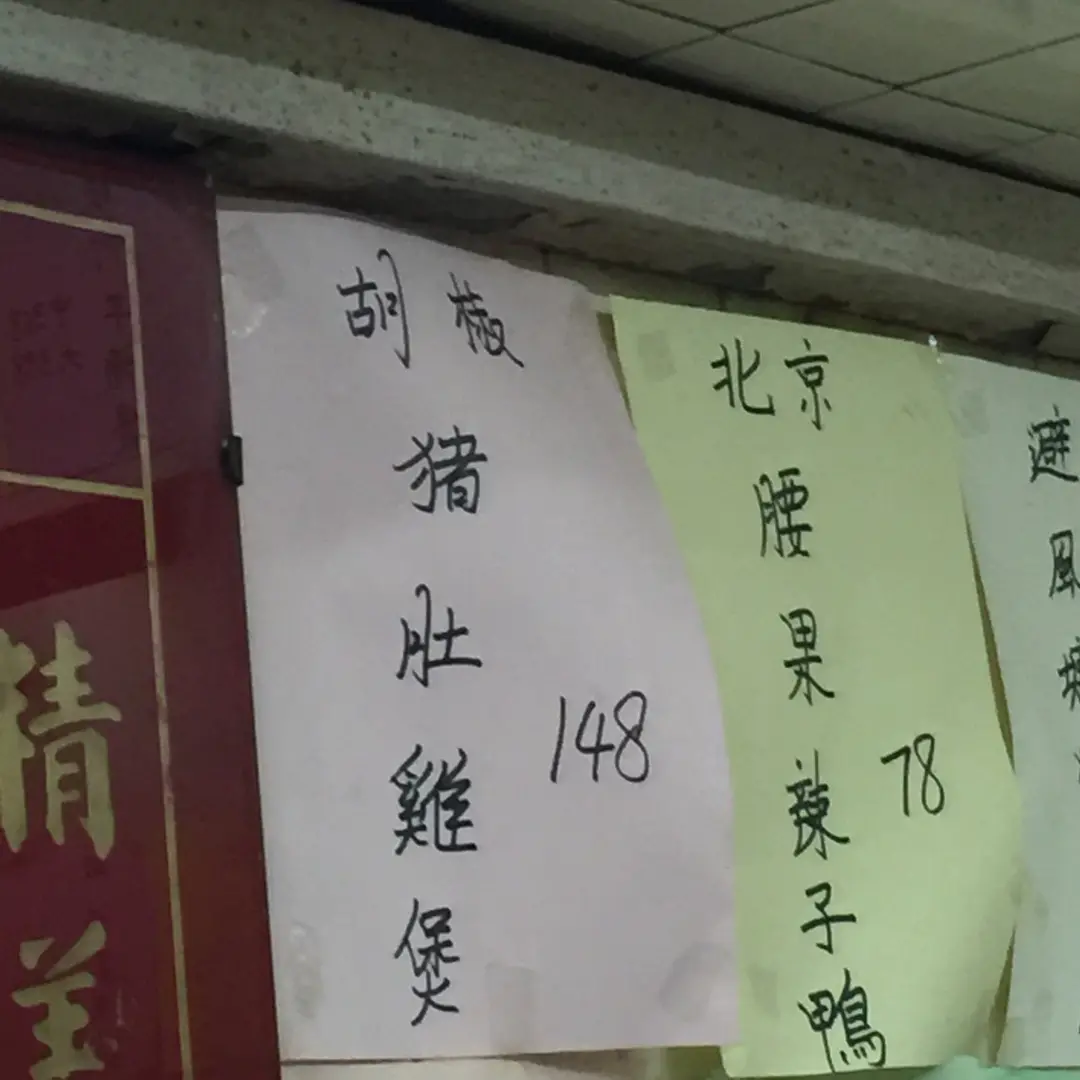 胡椒
猪
肚
雞
煲
148
北京
腰
果
辣
子
鴨
78
避
風
精